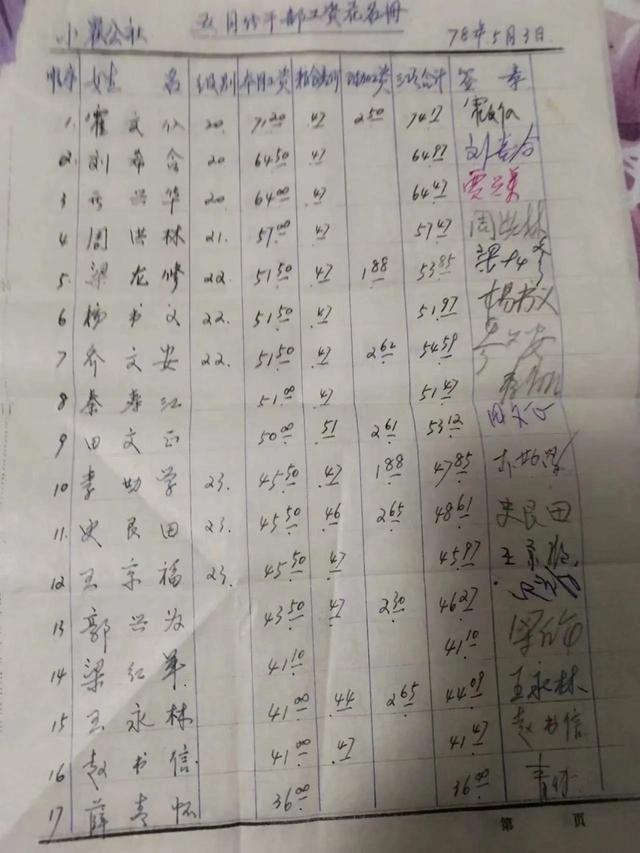 小瞿公社 五月份干部工资花名册 78年5月3日
顺序 姓名 级别 本月工资 粮食差价 附加工资 三项合计 签章
1. 霍文化 20. 71.20 .47 2.50 74.17 霍文化
2. 刘希合 20 64.50 .47 64.97 刘希合
3 贾兴华 20 64.00 .47 64.47
4 周洪林 21. 57.00 .47 57.47 周洪林
5. 梁龙修 22. 51.50 .47 1.88 53.85
6 杨书文 22. 51.50 .47 51.97 杨书文
7 乔文安 22. 51.50 .47 2.62 54.59
8 秦寿江 51.00 .47 51.47
9 田文正 50.00 .51 2.61 53.12 田文正
10 李幼学 23. 45.50 .47 1.88 47.85
11. 史良田 23. 45.50 .46 2.65 48.61 史良田
12 王京福 23. 45.50 .47 45.97 王京福
13 郭兴为 43.50 .47 2.30 46.27
14 梁红军 41.10 41.10
15 王永林 41.00 .44 2.65 44.09 王永林
16 赵书信 41.00 .47 41.47 赵书信
17 薛青怀 36.00 36.00 青怀
第 页